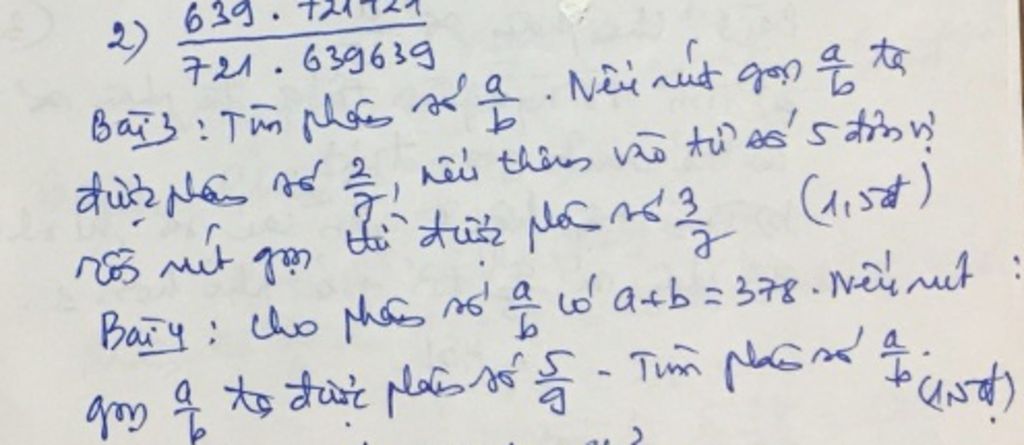 2) 639 . 721721 / 721 . 639639
Bài 3 : Tìm phân số a/b . Nếu rút gọn a/b ta
được phân số 2/7, nếu thêm vào tử số 5 đơn vị
rồi rút gọn thì được phân số 3/7 (1,5đ)
Bài 4 : Cho phân số a/b có a+b = 378 . Nếu rút
gọn a/b ta được phân số 5/9 - Tìm phân số a/b . (1,5đ)